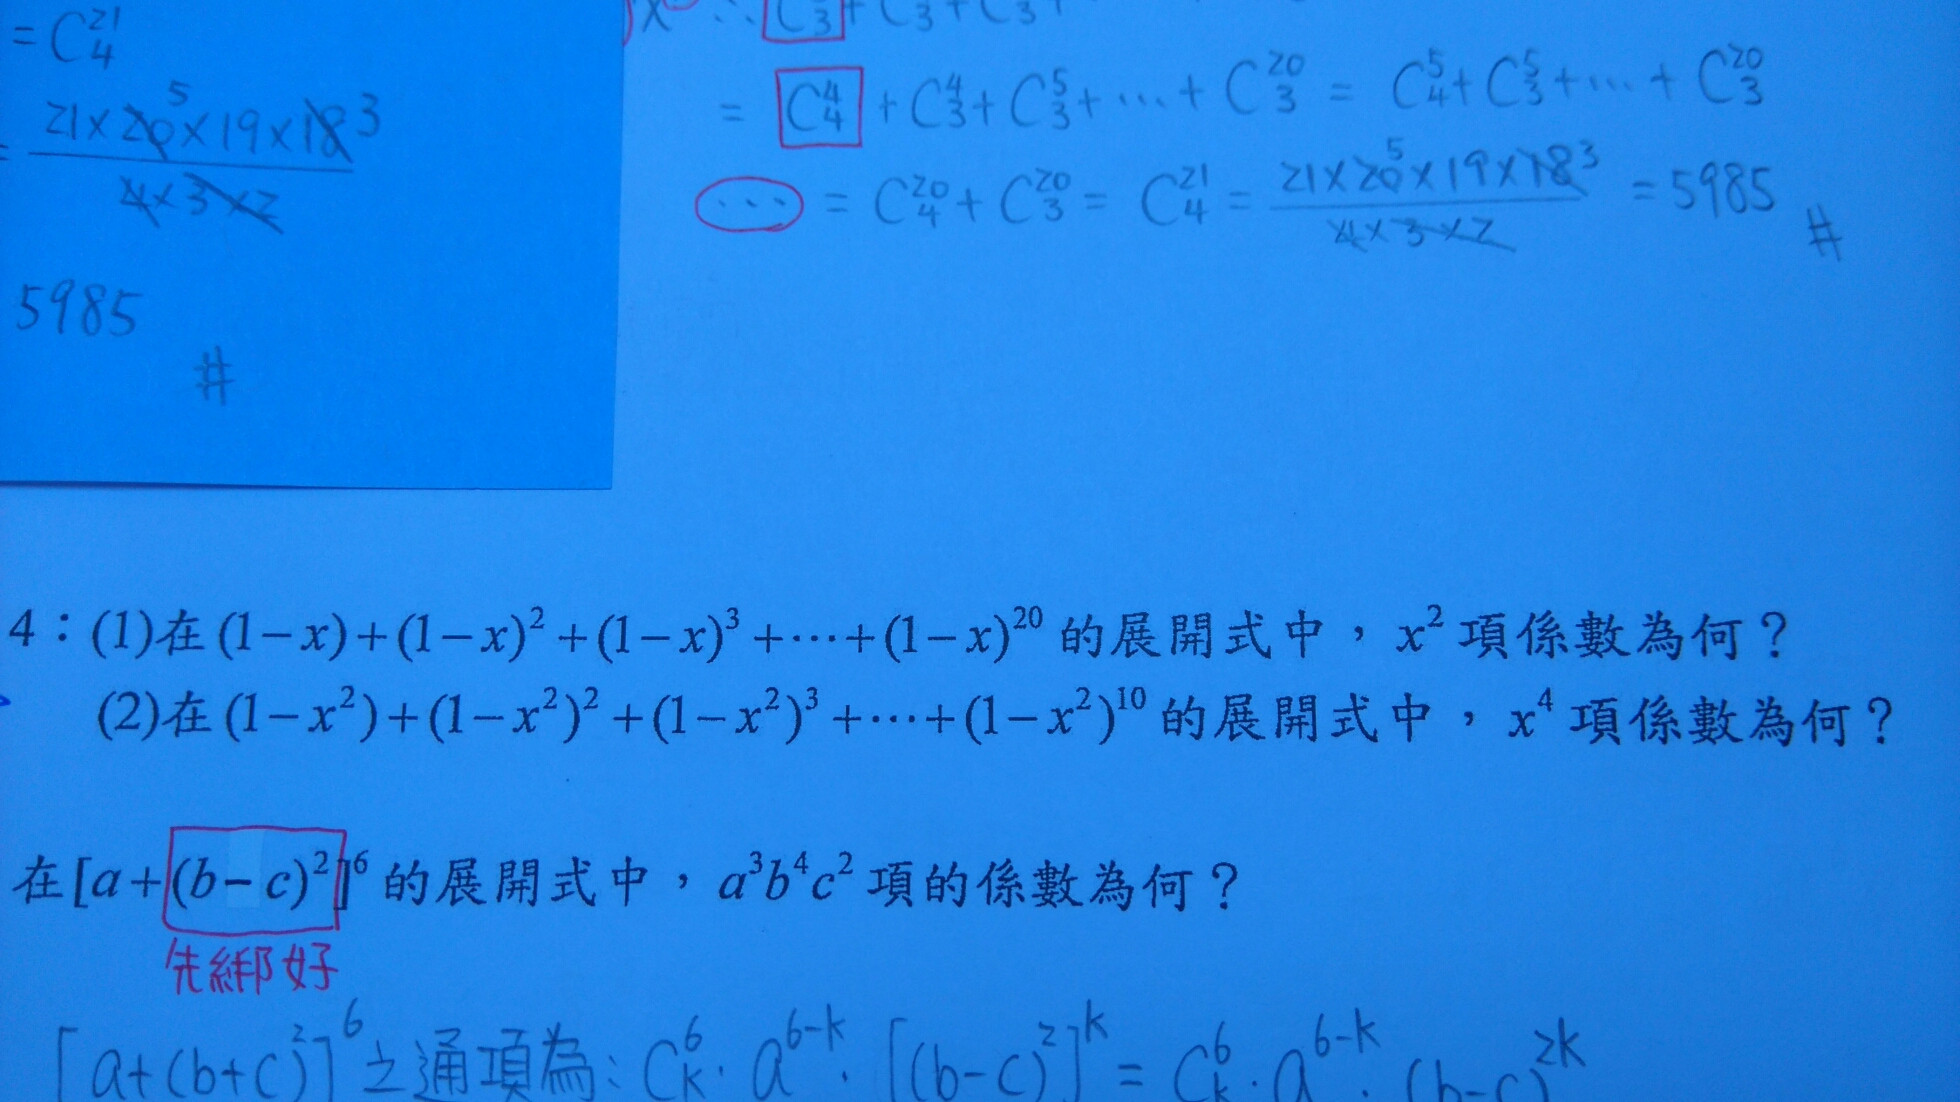 = C₄²¹
21×20⁵×19×18 3
4×3×2
5985
#
= C₄⁴ + C₃⁴ + C₃⁵ + ⋯ + C₃²⁰ = C₄⁵ + C₃⁵ + ⋯ + C₃²⁰
⋯ = C₄²⁰ + C₃²⁰ = C₄²¹ = 21×20⁵×19×18³ / 4×3×2 = 5985 #
4:(1)在 (1−x)+(1−x)²+(1−x)³+⋯+(1−x)²⁰ 的展開式中,x² 項係數為何?
(2)在 (1−x²)+(1−x²)²+(1−x²)³+⋯+(1−x²)¹⁰ 的展開式中,x⁴ 項係數為何?
在[a+(b−c)²]⁶ 的展開式中,a³b⁴c² 項的係數為何?
先綁好
[a+(b+c)²]⁶之通項為: Cₖ⁶·a⁶⁻ᵏ·[(b−c)²]ᵏ = Cₖ⁶·a⁶⁻ᵏ·(b−c)²ᵏ